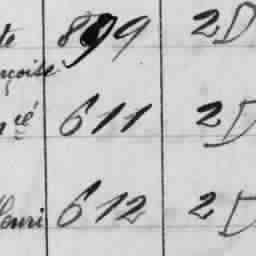 te 899 2D
nçoise
n cé 611 2D
Henri 612 2D